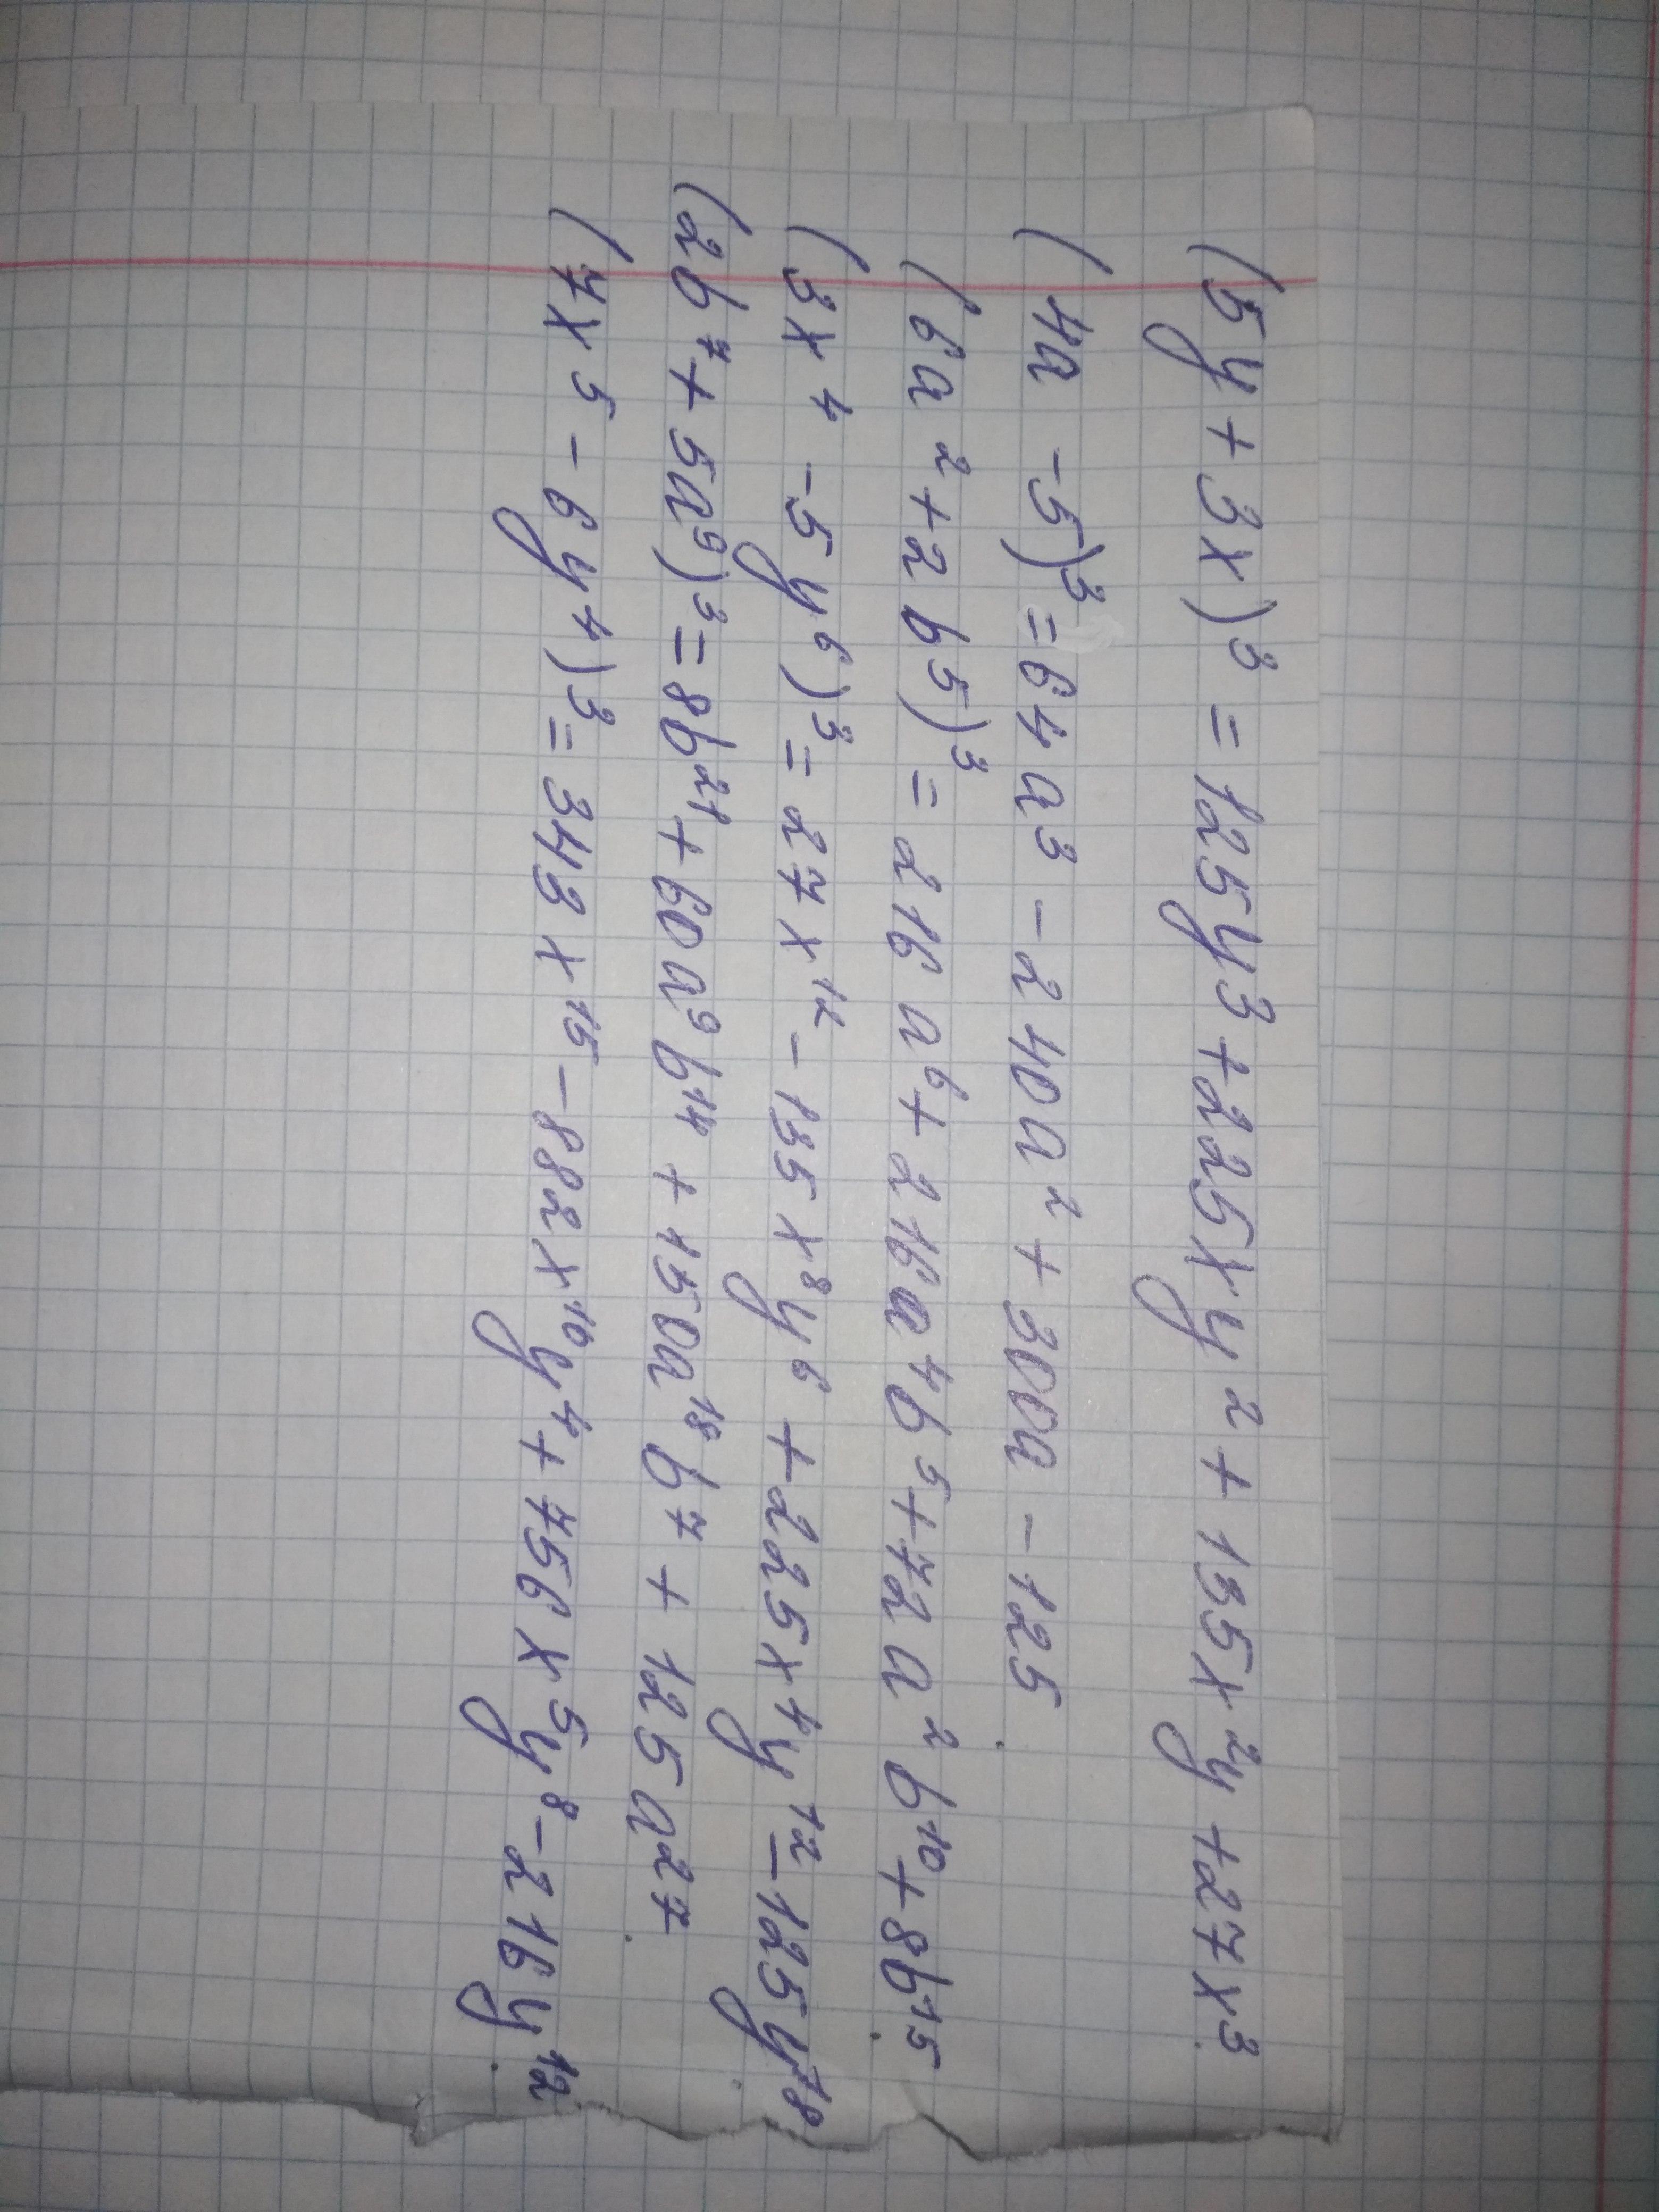 (5y + 3x)³ = 125y³ + 225xy² + 135x²y + 27x³.
(4a - 5)³ = 64a³ - 240a² + 300a - 125.
(6a² + 2b⁵)³ = 216a⁶ + 216a⁴b⁵ + 72a²b¹⁰ + 8b¹⁵.
(3x⁴ - 5y⁶)³ = 27x¹² - 135x⁸y⁶ + 225x⁴y¹² - 125y¹⁸.
(2b⁷ + 5a⁹)³ = 8b²¹ + 60a⁹b¹⁴ + 150a¹⁸b⁷ + 125a²⁷.
(7x⁵ - 6y⁴)³ = 343x¹⁵ - 882x¹⁰y⁴ + 756x⁵y⁸ - 216y¹².